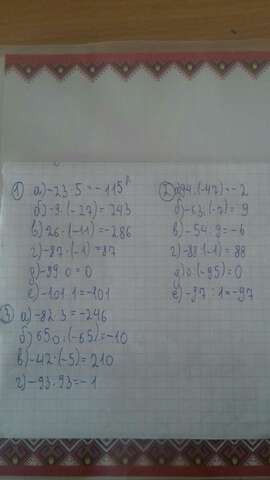 1) а) -23·5=-115
б) -9·(-27)=243
в) 26·(-11)=-286
г) -87·(-1)=87
д) -99·0=0
е) -101·1=-101
2) а) 94:(-47)=-2
б) -63:(-7)=9
в) -54:9=-6
г) -88:(-1)=88
д) 0:(-95)=0
е) -97:1=-97
3) а) -82·3=-246
б) 650:(-65)=-10
в) -42·(-5)=210
г) -93:93=-1